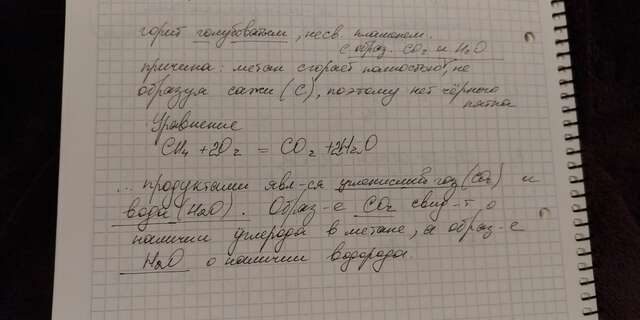 горит голубоватым, несв. пламенем.
с образ. CO2 и H2O
причина: метан сгорает полностью, не
образуя сажи (C), поэтому нет чёрного
пятна
Уравнение
CH4 + 2O2 = CO2 + 2H2O
... продуктами явл-ся углекислый газ (CO2) и
вода (H2O). Образ-е CO2 свид-т о
наличии углерода в метане, а образ-е
H2O о наличии водорода.